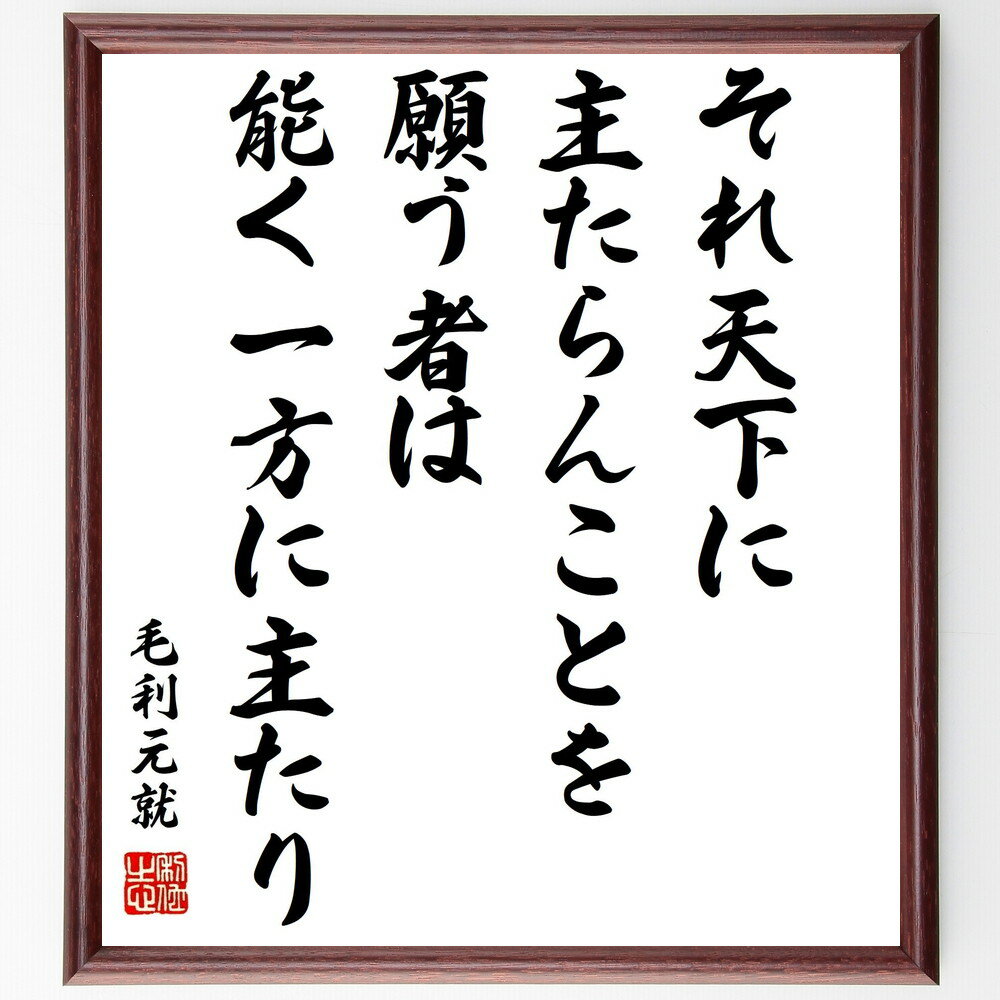 それ天下に
主たらんことを
願う者は
能く一方に主たり
毛利元就